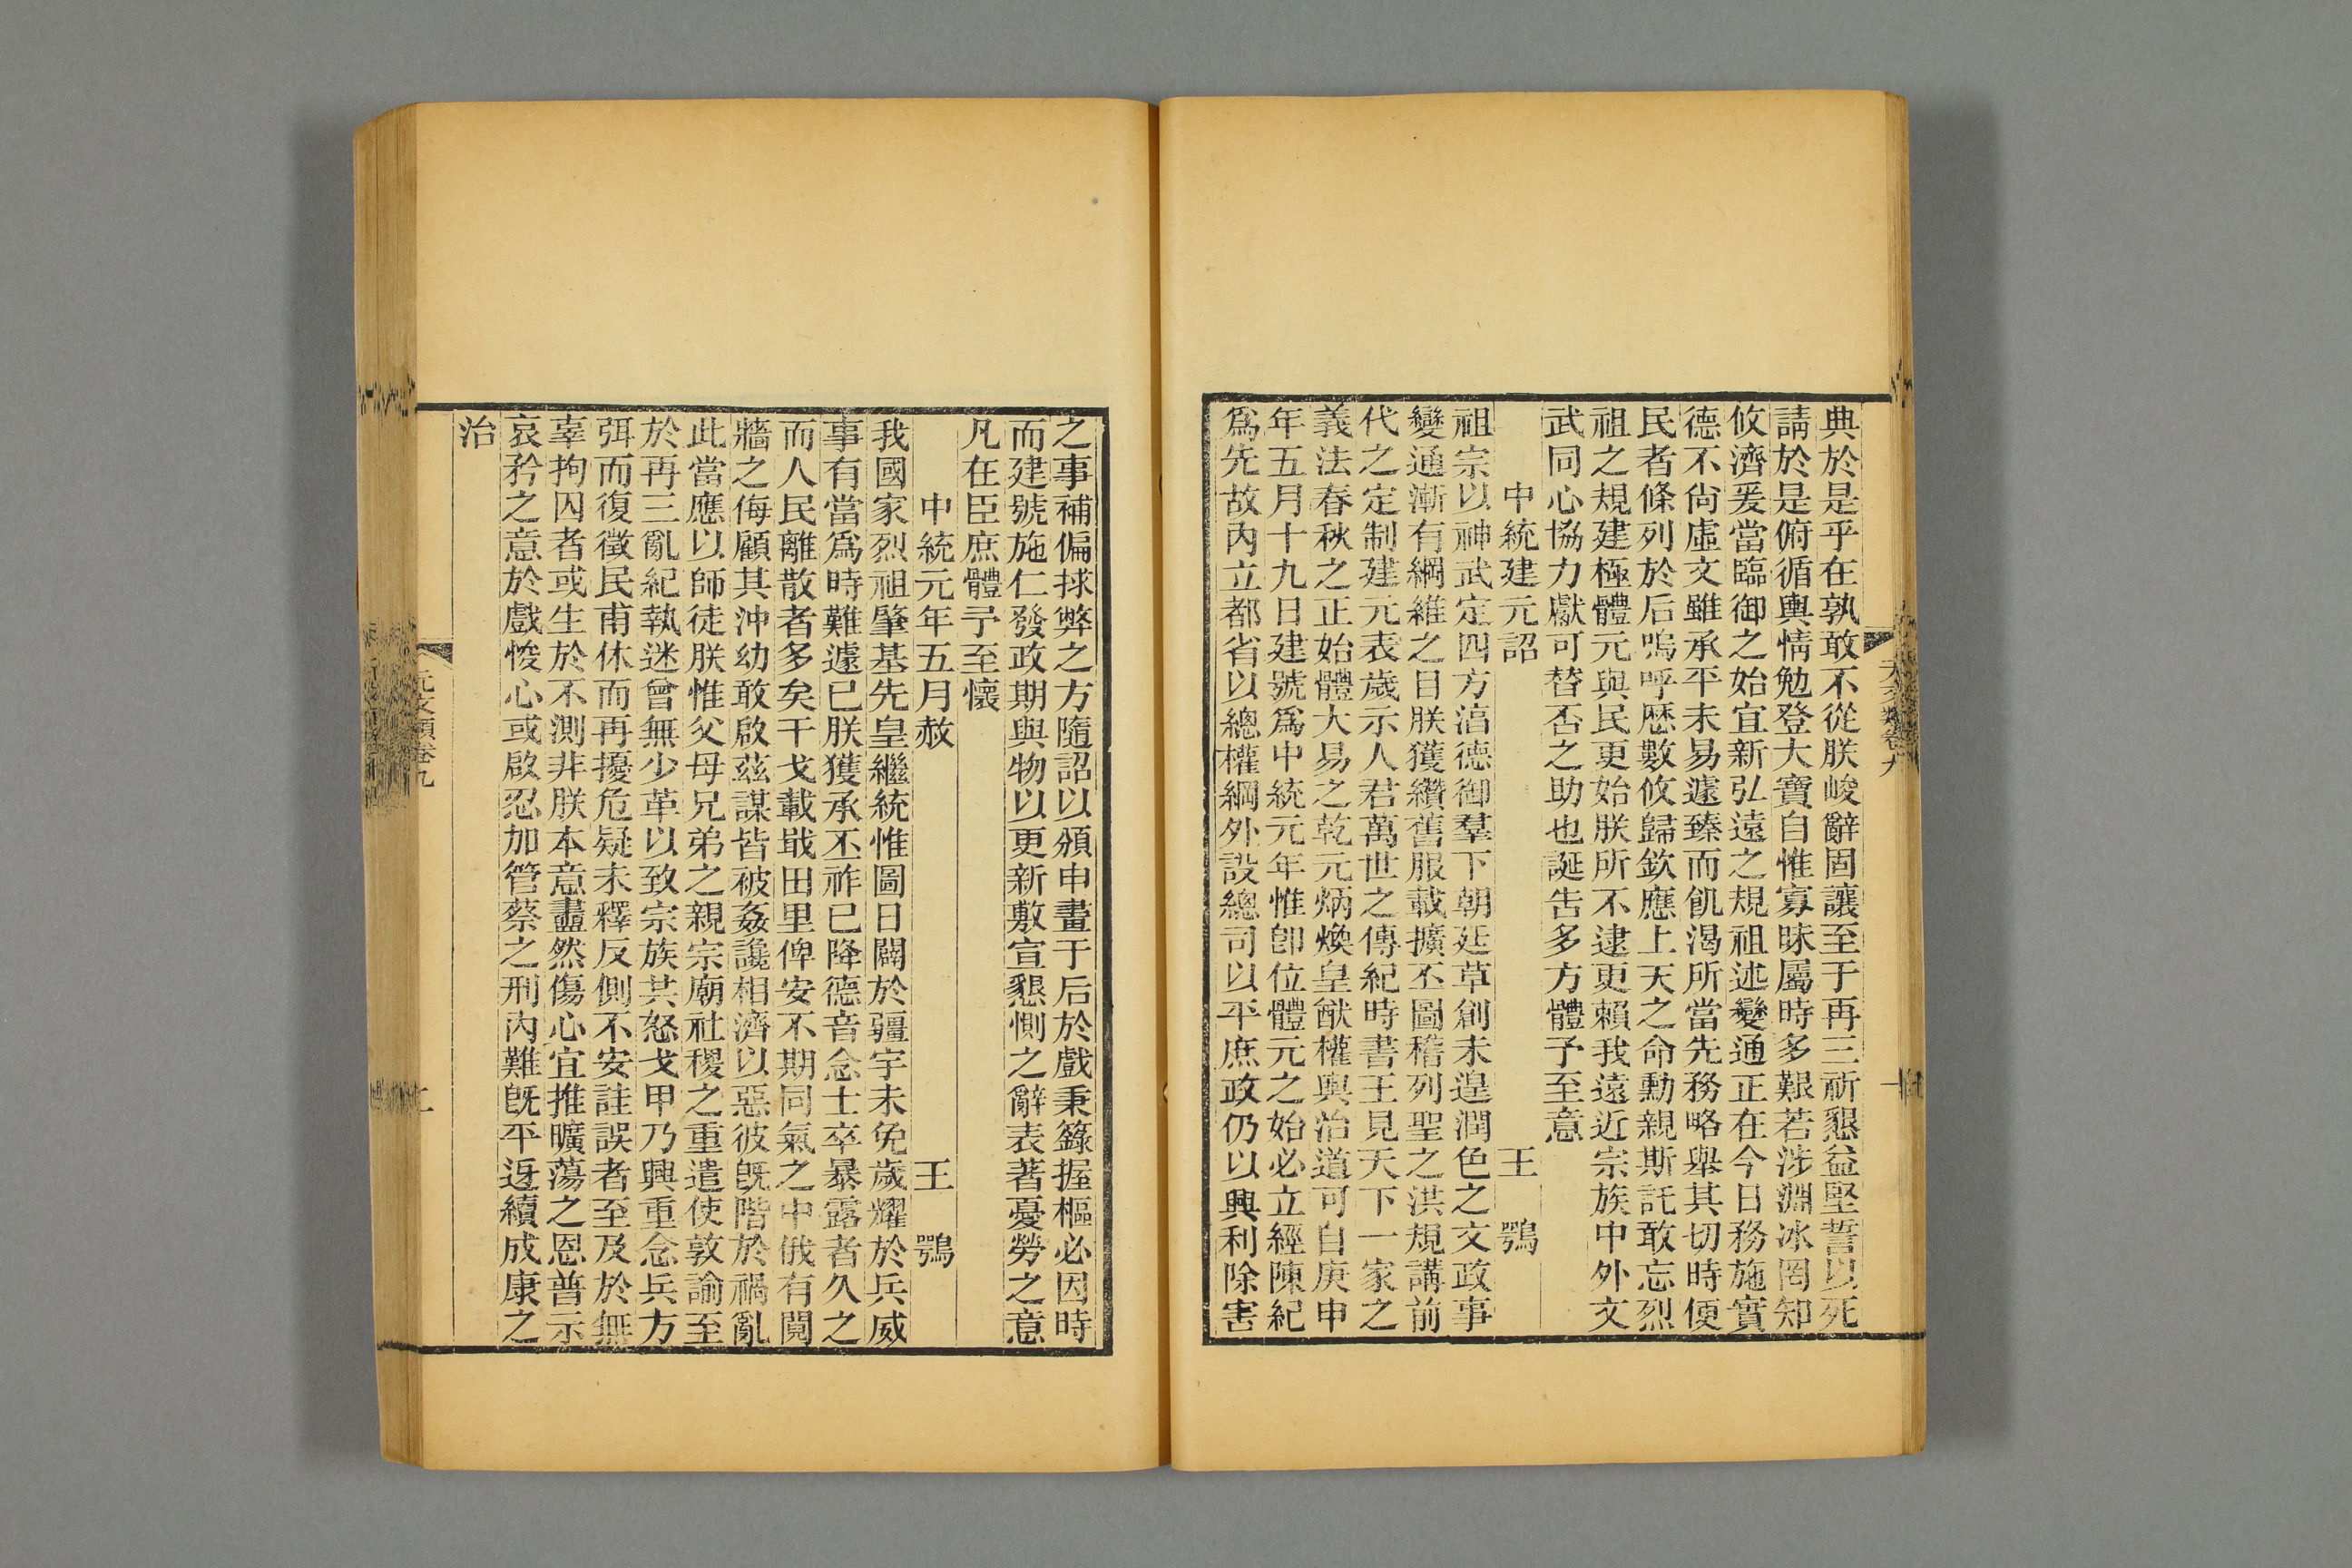 典於是乎在孰敢不從朕峻辭固讓至于再三祈懇益堅誓以死
請於是俯循輿情勉登大寶自惟寡昧屬時多艱若涉淵冰罔知
攸濟爰當臨御之始宜新弘遠之規祖述變通正在今日務施實
德不尙虛文雖承平未易遽臻而飢渴所當先務略舉其切時便
民者條列於后嗚呼歷數攸歸欽應上天之命勳親斯託敢忘烈
祖之規建極體元與民更始朕所不逮更賴我遠近宗族中外文
武同心協力獻可替否之助也誕告多方體予至意
中統建元詔 王鶚
祖宗以神武定四方淯德御羣下朝廷草創未遑潤色之文政事
變通漸有綱維之目朕獲纘舊服載擴丕圖稽列聖之洪規講前
代之定制建元表歲示人君萬世之傳紀時書王見天下一家之
義法春秋之正始體大易之乾元炳煥皇猷權輿治道可自庚申
年五月十九日建號爲中統元年惟卽位體元之始必立經陳紀
爲先故內立都省以總權綱外設總司以平庶政仍以興利除害
之事補偏捄弊之方隨詔以頒申畫于后於戲秉籙握樞必因時
而建號施仁發政期與物以更新敷宣懇惻之辭表著憂勞之意
凡在臣庶體予至懷
中統元年五月赦 王鶚
我國家烈祖肇基先皇繼統惟圖日闢於疆宇未免歲耀於兵威
事有當爲時難遽已朕獲承丕祚已降德音念士卒暴露者久之
而人民離散者多矣干戈載戢田里俾安不期同氣之中俄有鬩
牆之侮顧其沖幼敢啟茲謀皆被姦讒相濟以惡彼旣階於禍亂
此當應以師徒朕惟父母兄弟之親宗廟社稷之重遣使敦諭至
於再三亂紀執迷曾無少革以致宗族共怒戈甲乃興重念兵方
弭而復徵民甫休而再擾危疑未釋反側不安詿誤者至及於無
辜拘囚者或生於不測非朕本意盡然傷心宜推曠蕩之恩普示
哀矜之意於戲悛心或啟忍加管蔡之刑內難旣平迓續成康之
治
元文類卷九
二